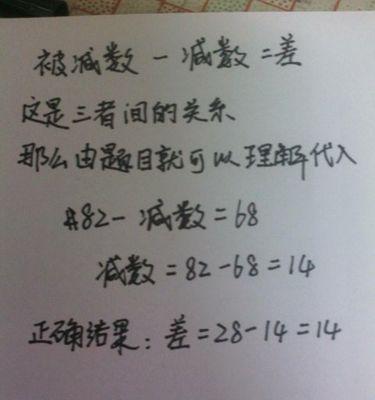 被减数－减数=差
这是三者间的关系
那么由题目就可以理解代入
82－减数=68
减数=82-68=14
正确结果:差=28-14=14